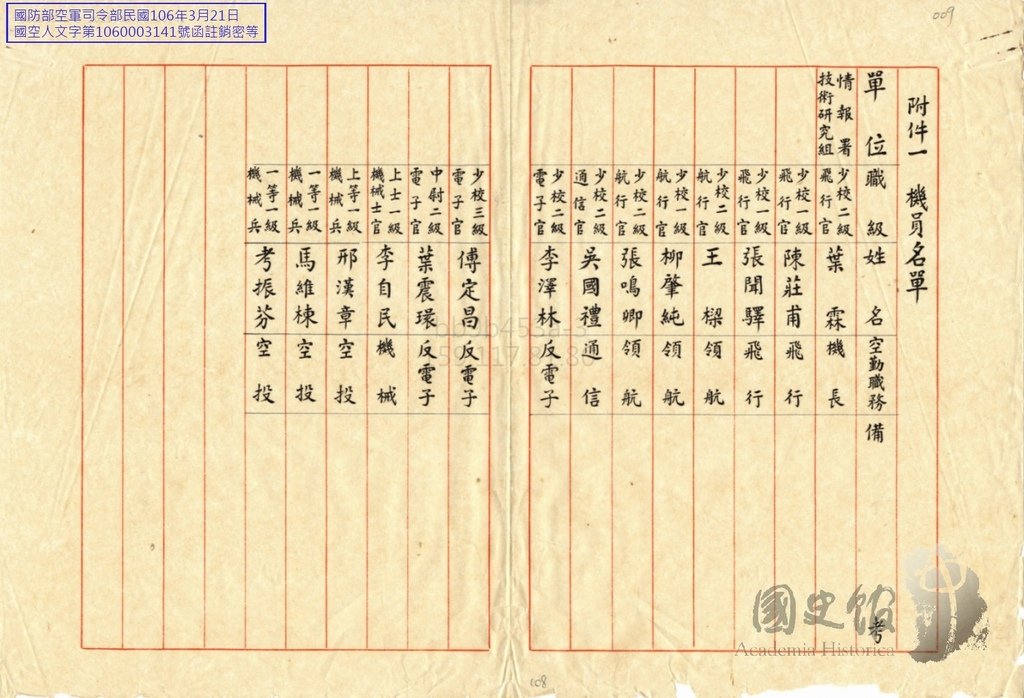 國防部空軍司令部民國106年3月21日
國空人文字第1060003141號函註銷密等
009
附件一 機員名單
單位 職級 姓名 空勤職務 備考
情報署技術研究組 少校二級飛行官 葉霖 機長
少校一級飛行官 陳莊甫 飛行
少校一級飛行官 張聞驛 飛行
少校二級航行官 王樑 領航
少校一級航行官 柳肇純 領航
少校二級航行官 張鳴卿 領航
少校二級通信官 吳國禮 通信
少校二級電子官 李澤林 反電子
少校三級電子官 傅定昌 反電子
中尉二級電子官 葉震環 反電子
上士一級機械士官 李自民 機械
上等一級機械兵 邢漢章 空投
一等一級機械兵 馬維棟 空投
一等一級機械兵 考振芬 空投
國史館
Academia Historica
008